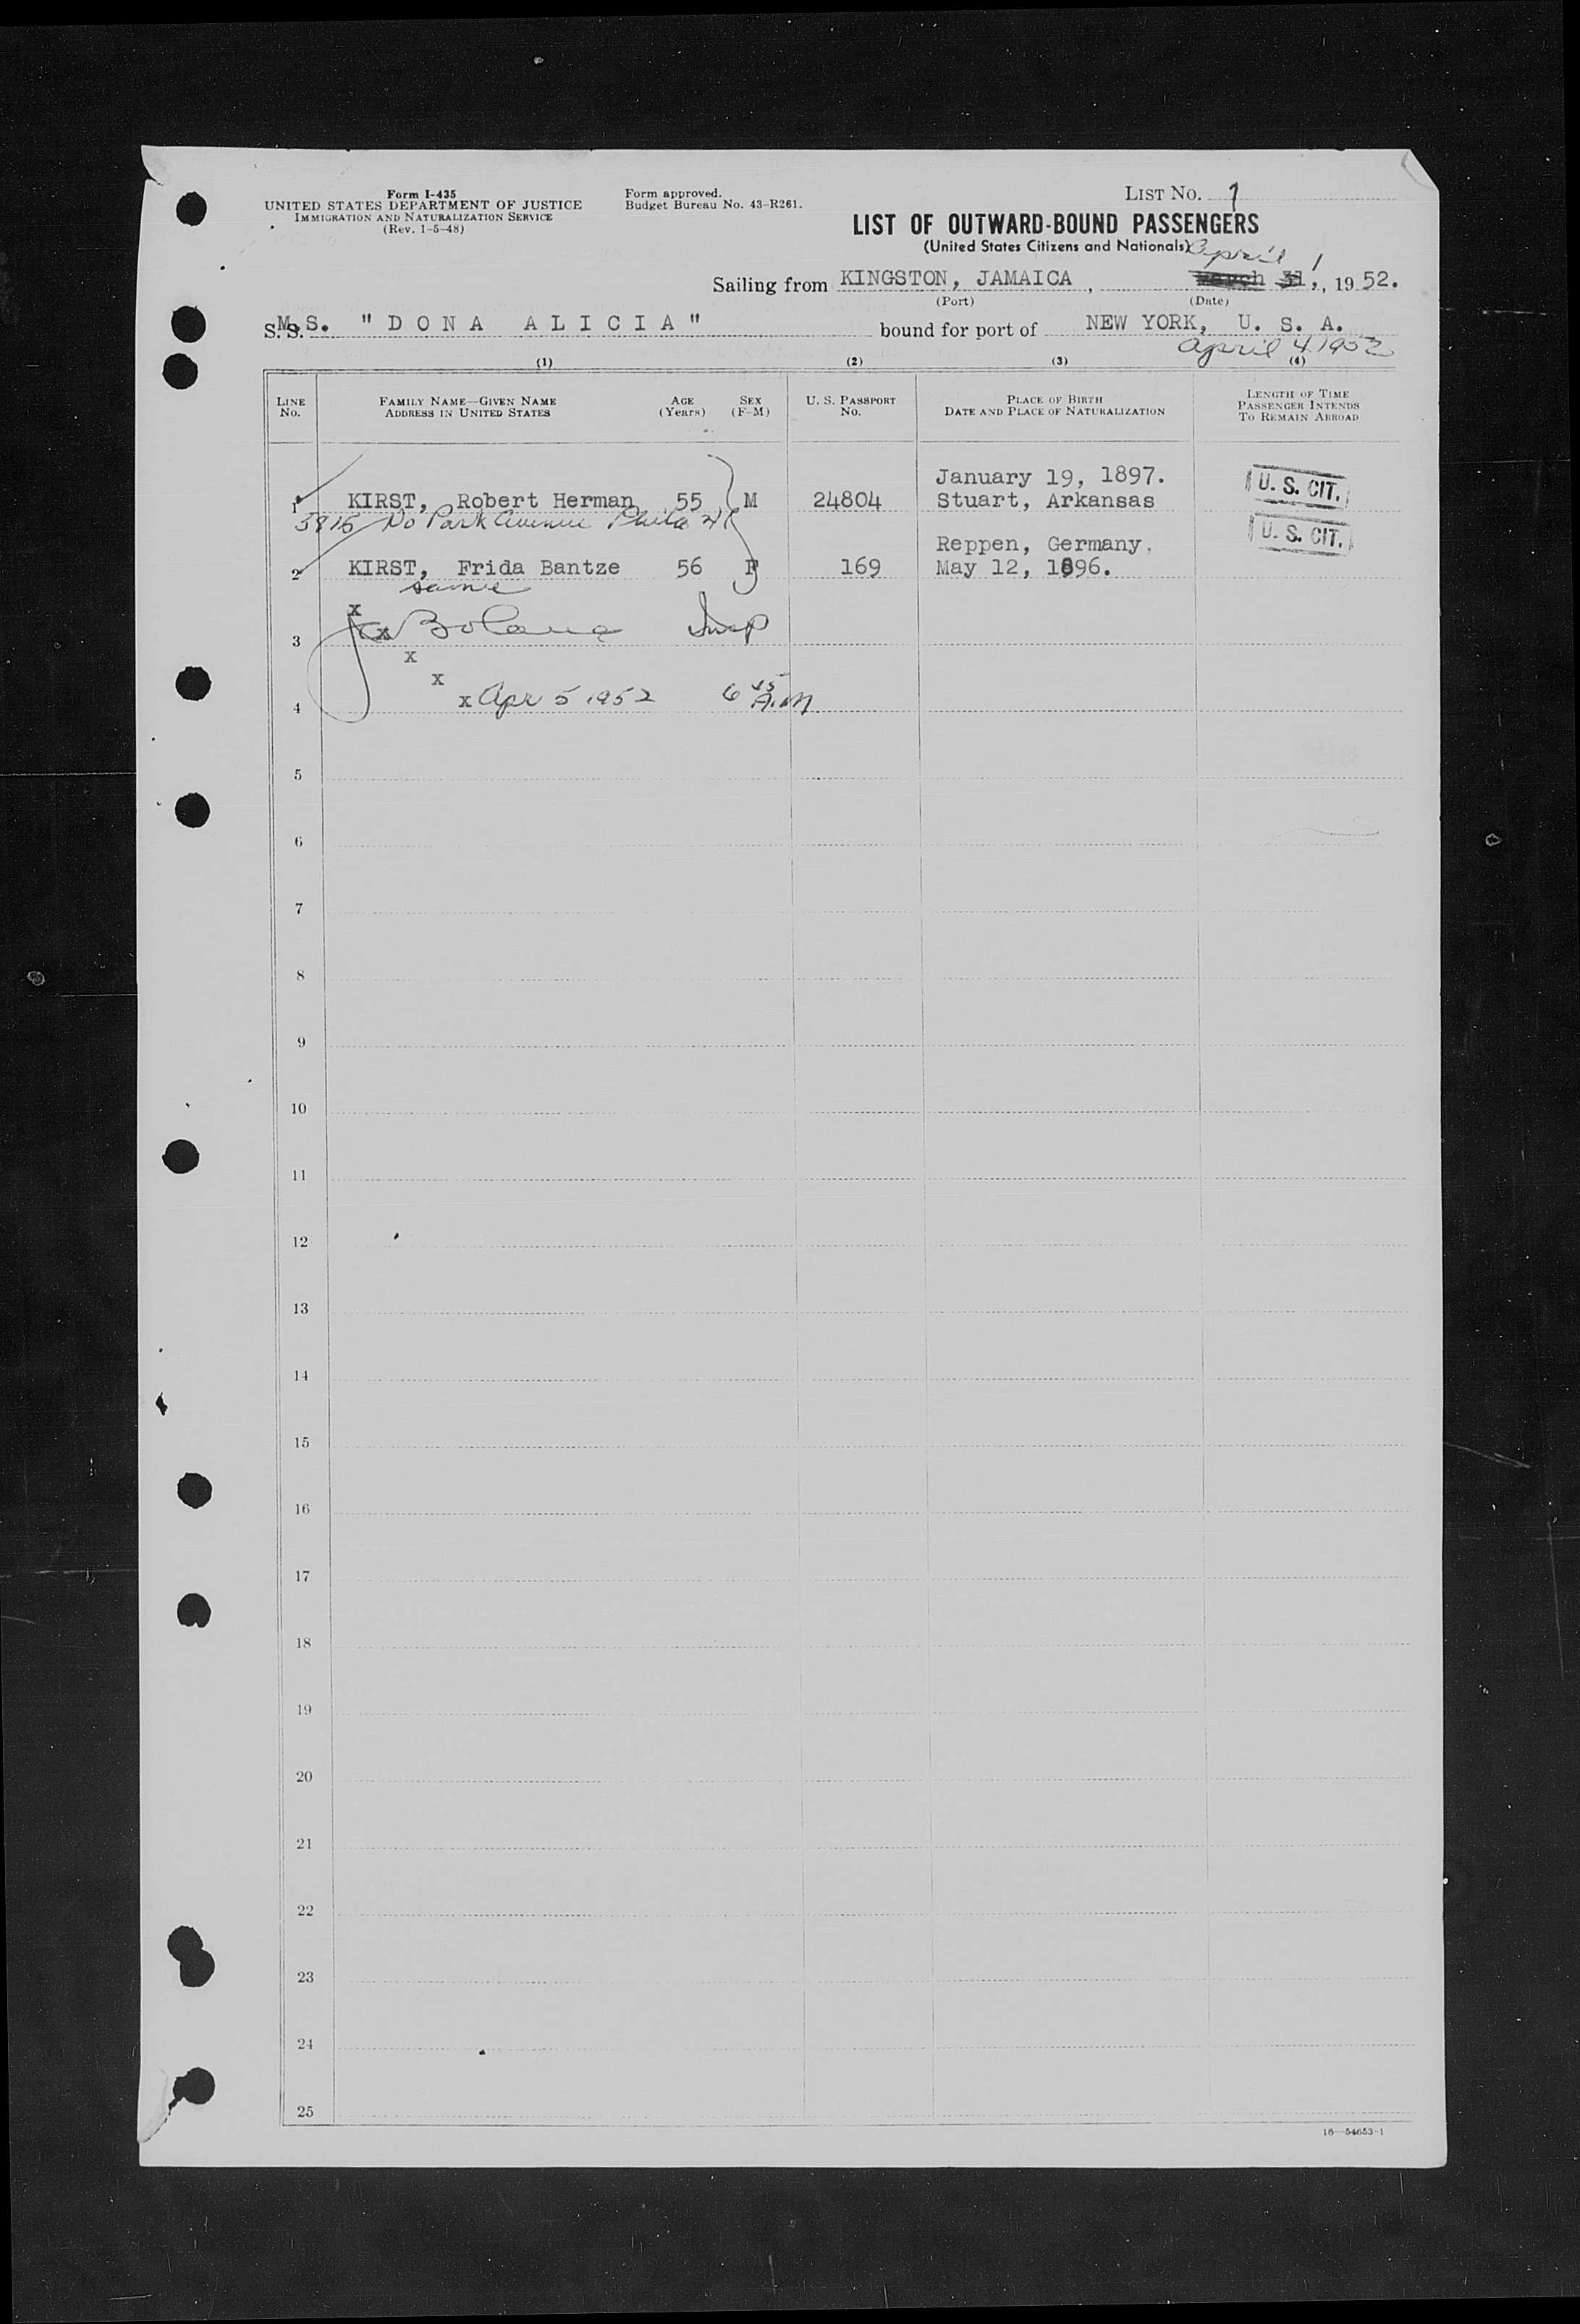 Form I-435
UNITED STATES DEPARTMENT OF JUSTICE
IMMIGRATION AND NATURALIZATION SERVICE
(Rev. 1-5-48)
Form approved.
Budget Bureau No. 43-R261.
LIST No. 1
LIST OF OUTWARD-BOUND PASSENGERS
(United States Citizens and Nationals)
April 1
Sailing from KINGSTON, JAMAICA, March 31, 1952.
(Port) (Date)
S.S. M.S. "DONA ALICIA" bound for port of NEW YORK, U. S. A.
April 4 1952
(1) (2) (3) (4)
LINE No.
FAMILY NAME—GIVEN NAME
ADDRESS IN UNITED STATES
AGE (Years)
SEX (F-M)
U. S. PASSPORT No.
PLACE OF BIRTH
DATE AND PLACE OF NATURALIZATION
LENGTH OF TIME
PASSENGER INTENDS
TO REMAIN ABROAD
January 19, 1897.
1 KIRST, Robert Herman 55 M 24804 Stuart, Arkansas U. S. CIT.
No Park Avenue Phila
Reppen, Germany. U. S. CIT.
2 KIRST, Frida Bantze 56 F 169 May 12, 1896.
same
x
x Insp
3
x
x
x Apr 5 1952 6 A.M
4
5
6
7
8
9
10
11
12
13
14
15
16
17
18
19
20
21
22
23
24
25
16—54653-1